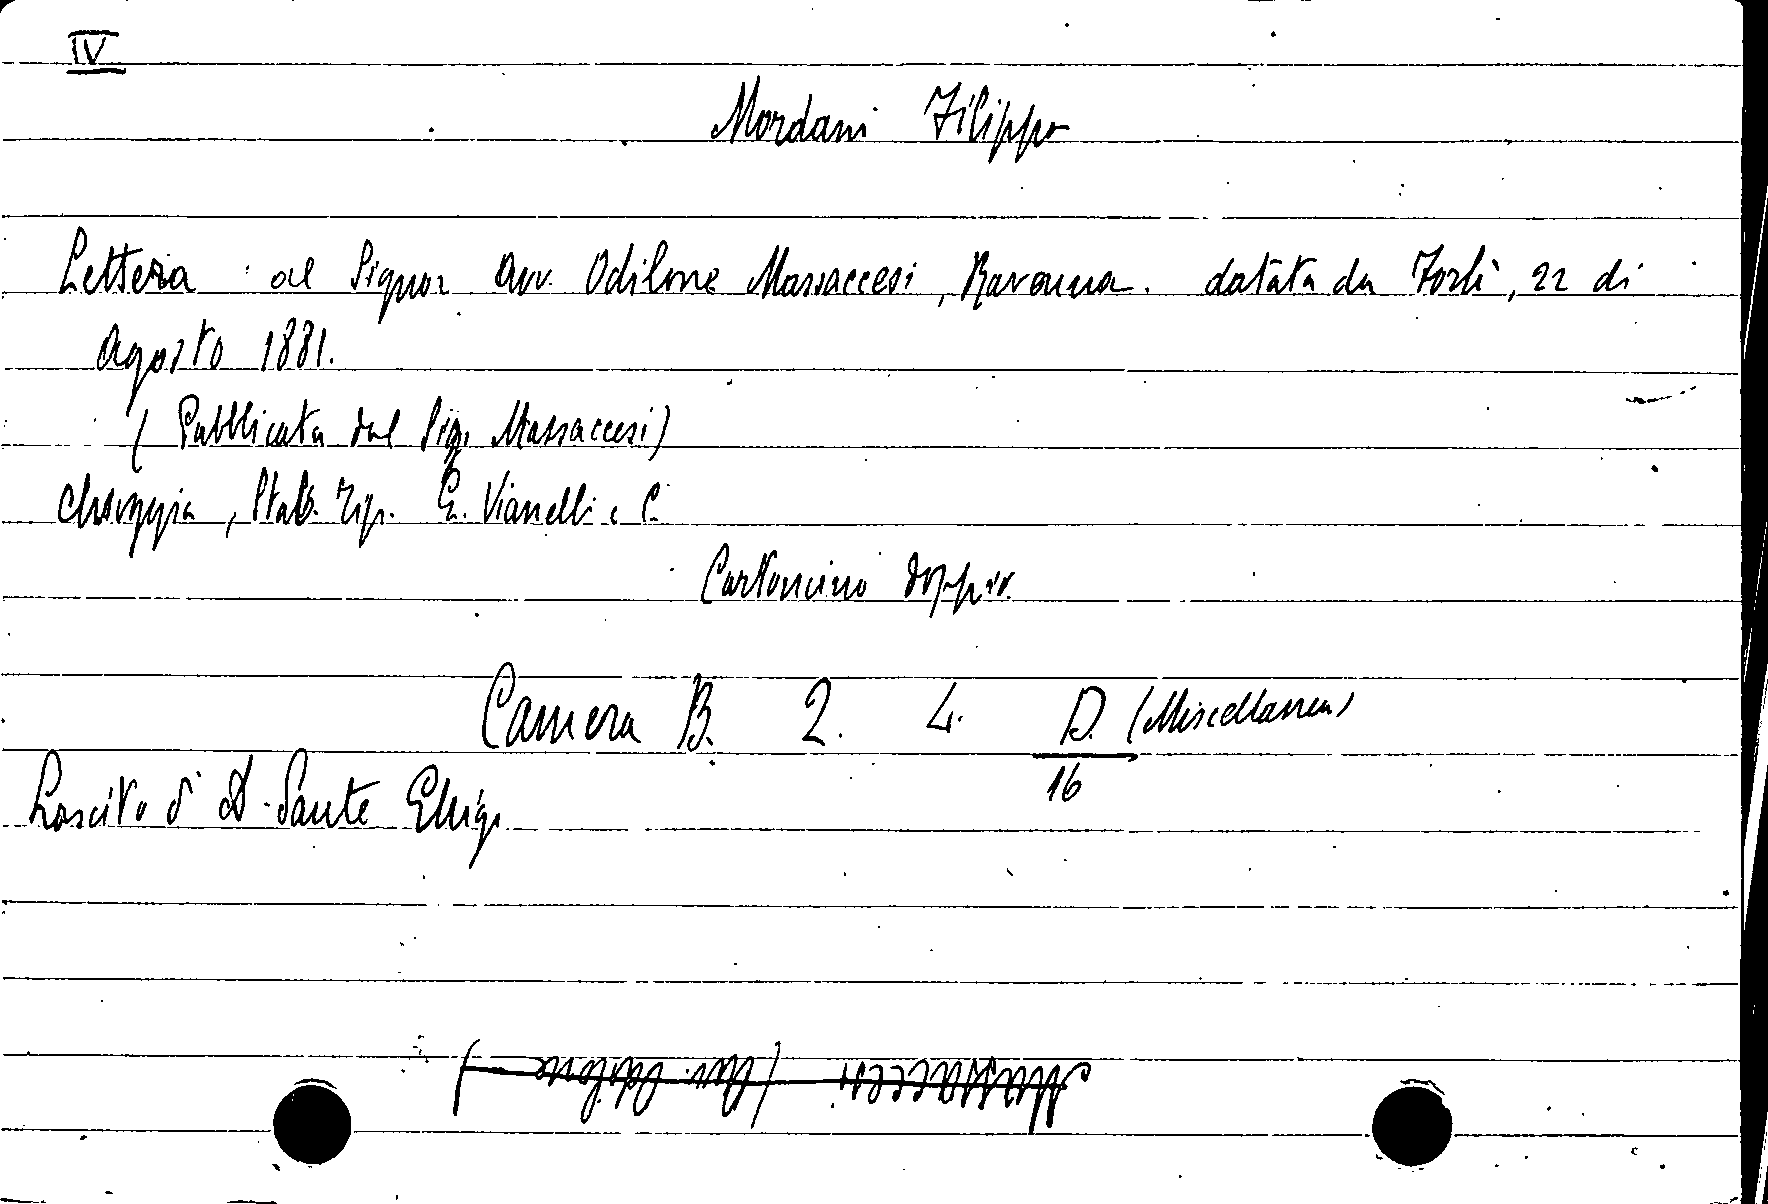 IV
Mordani Filippo
Lettera al Signor Avv. Odilone Massaccesi, Ravenna. datata da Forlì, 22 di
Agosto 1881.
(Pubblicata dal Sig. Massaccesi)
Chioggia, Stab. Tip. G. Vianelli e C.
Cartoncino doppio.
Camera B. 2. 4. D. (Miscellanea)
16
Lascito di D. Sante
Massaccesi (Avv. Odilone)